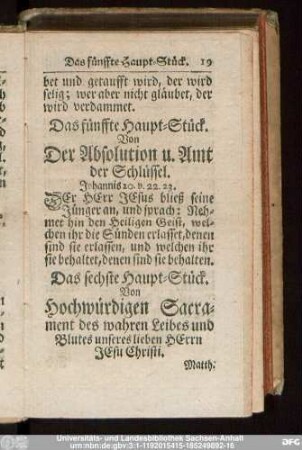 Das fünffte Haupt-Stück. 19
bet und getaufft wird, der wird
selig; wer aber nicht gläubet, der
wird verdammet.
Das fünffte Haupt-Stück.
Von
Der Absolution u. Amt
der Schlüssel.
Johannis 20. v. 22. 23.
DEr HErr JEsus bließ seine
Jünger an, und sprach: Neh-
met hin den Heiligen Geist, wel-
chen ihr die Sünden erlasset, denen
sind sie erlassen, und welchen ihr
sie behaltet, denen sind sie behalten.
Das sechste Haupt-Stück.
Von
Hochwürdigen Sacra-
ment des wahren Leibes und
Blutes unseres lieben HErrn
JEsu Christi.
Matth.
Universitäts- und Landesbibliothek Sachsen-Anhalt
urn:nbn:de:gbv:3:1-1192015415-185249092-16
DFG